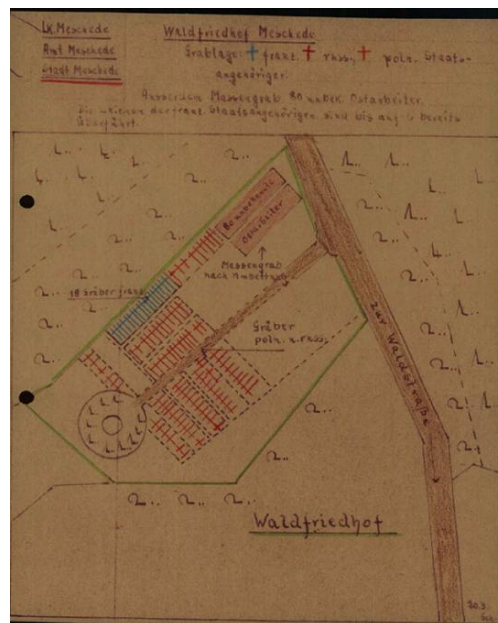 Lk. Meschede
Amt Meschede
Stadt Meschede
Waldfriedhof Meschede
Grablage: + franz. + russ., + poln. Staats-
angehöriger.
Ausserdem Massengrab 80 unbek. Ostarbeiter.
Die Leichen der franz. Staatsangehörigen sind bis auf 6 bereits
überführt.
80 unbekannte
Ostarbeiter
Massengrab
nach Umbettung
18 Gräber franz.
Gräber
poln. u. russ.
zur Waldstraße
Waldfriedhof